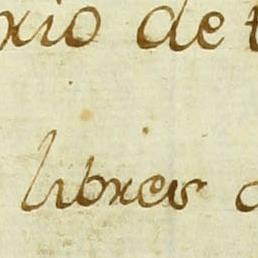 xio de t
libres d